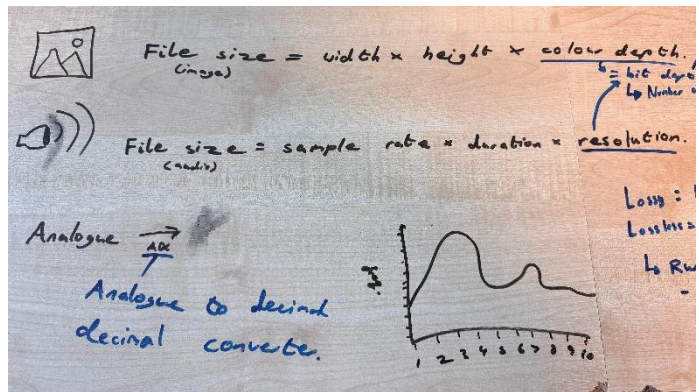 File size = width × height × colour depth.
(image)
= bit dept
↳ Number
File size = sample rate × duration × resolution.
(audio)
Lossy =
Lossless =
↳ Ru
Analogue →
ADC
Analogue to decimal
decimal converter.
1 2 3 4 5 6 7 8 9 10